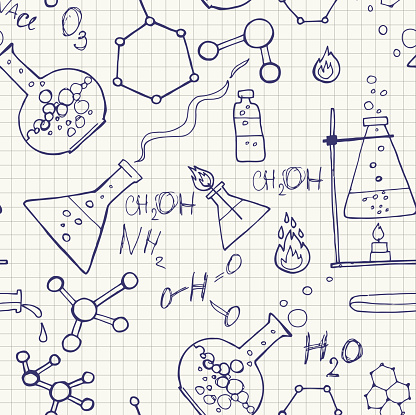 NACl
O3
CH2OH
CH2OH
NH2
O-H=O
O
H2O